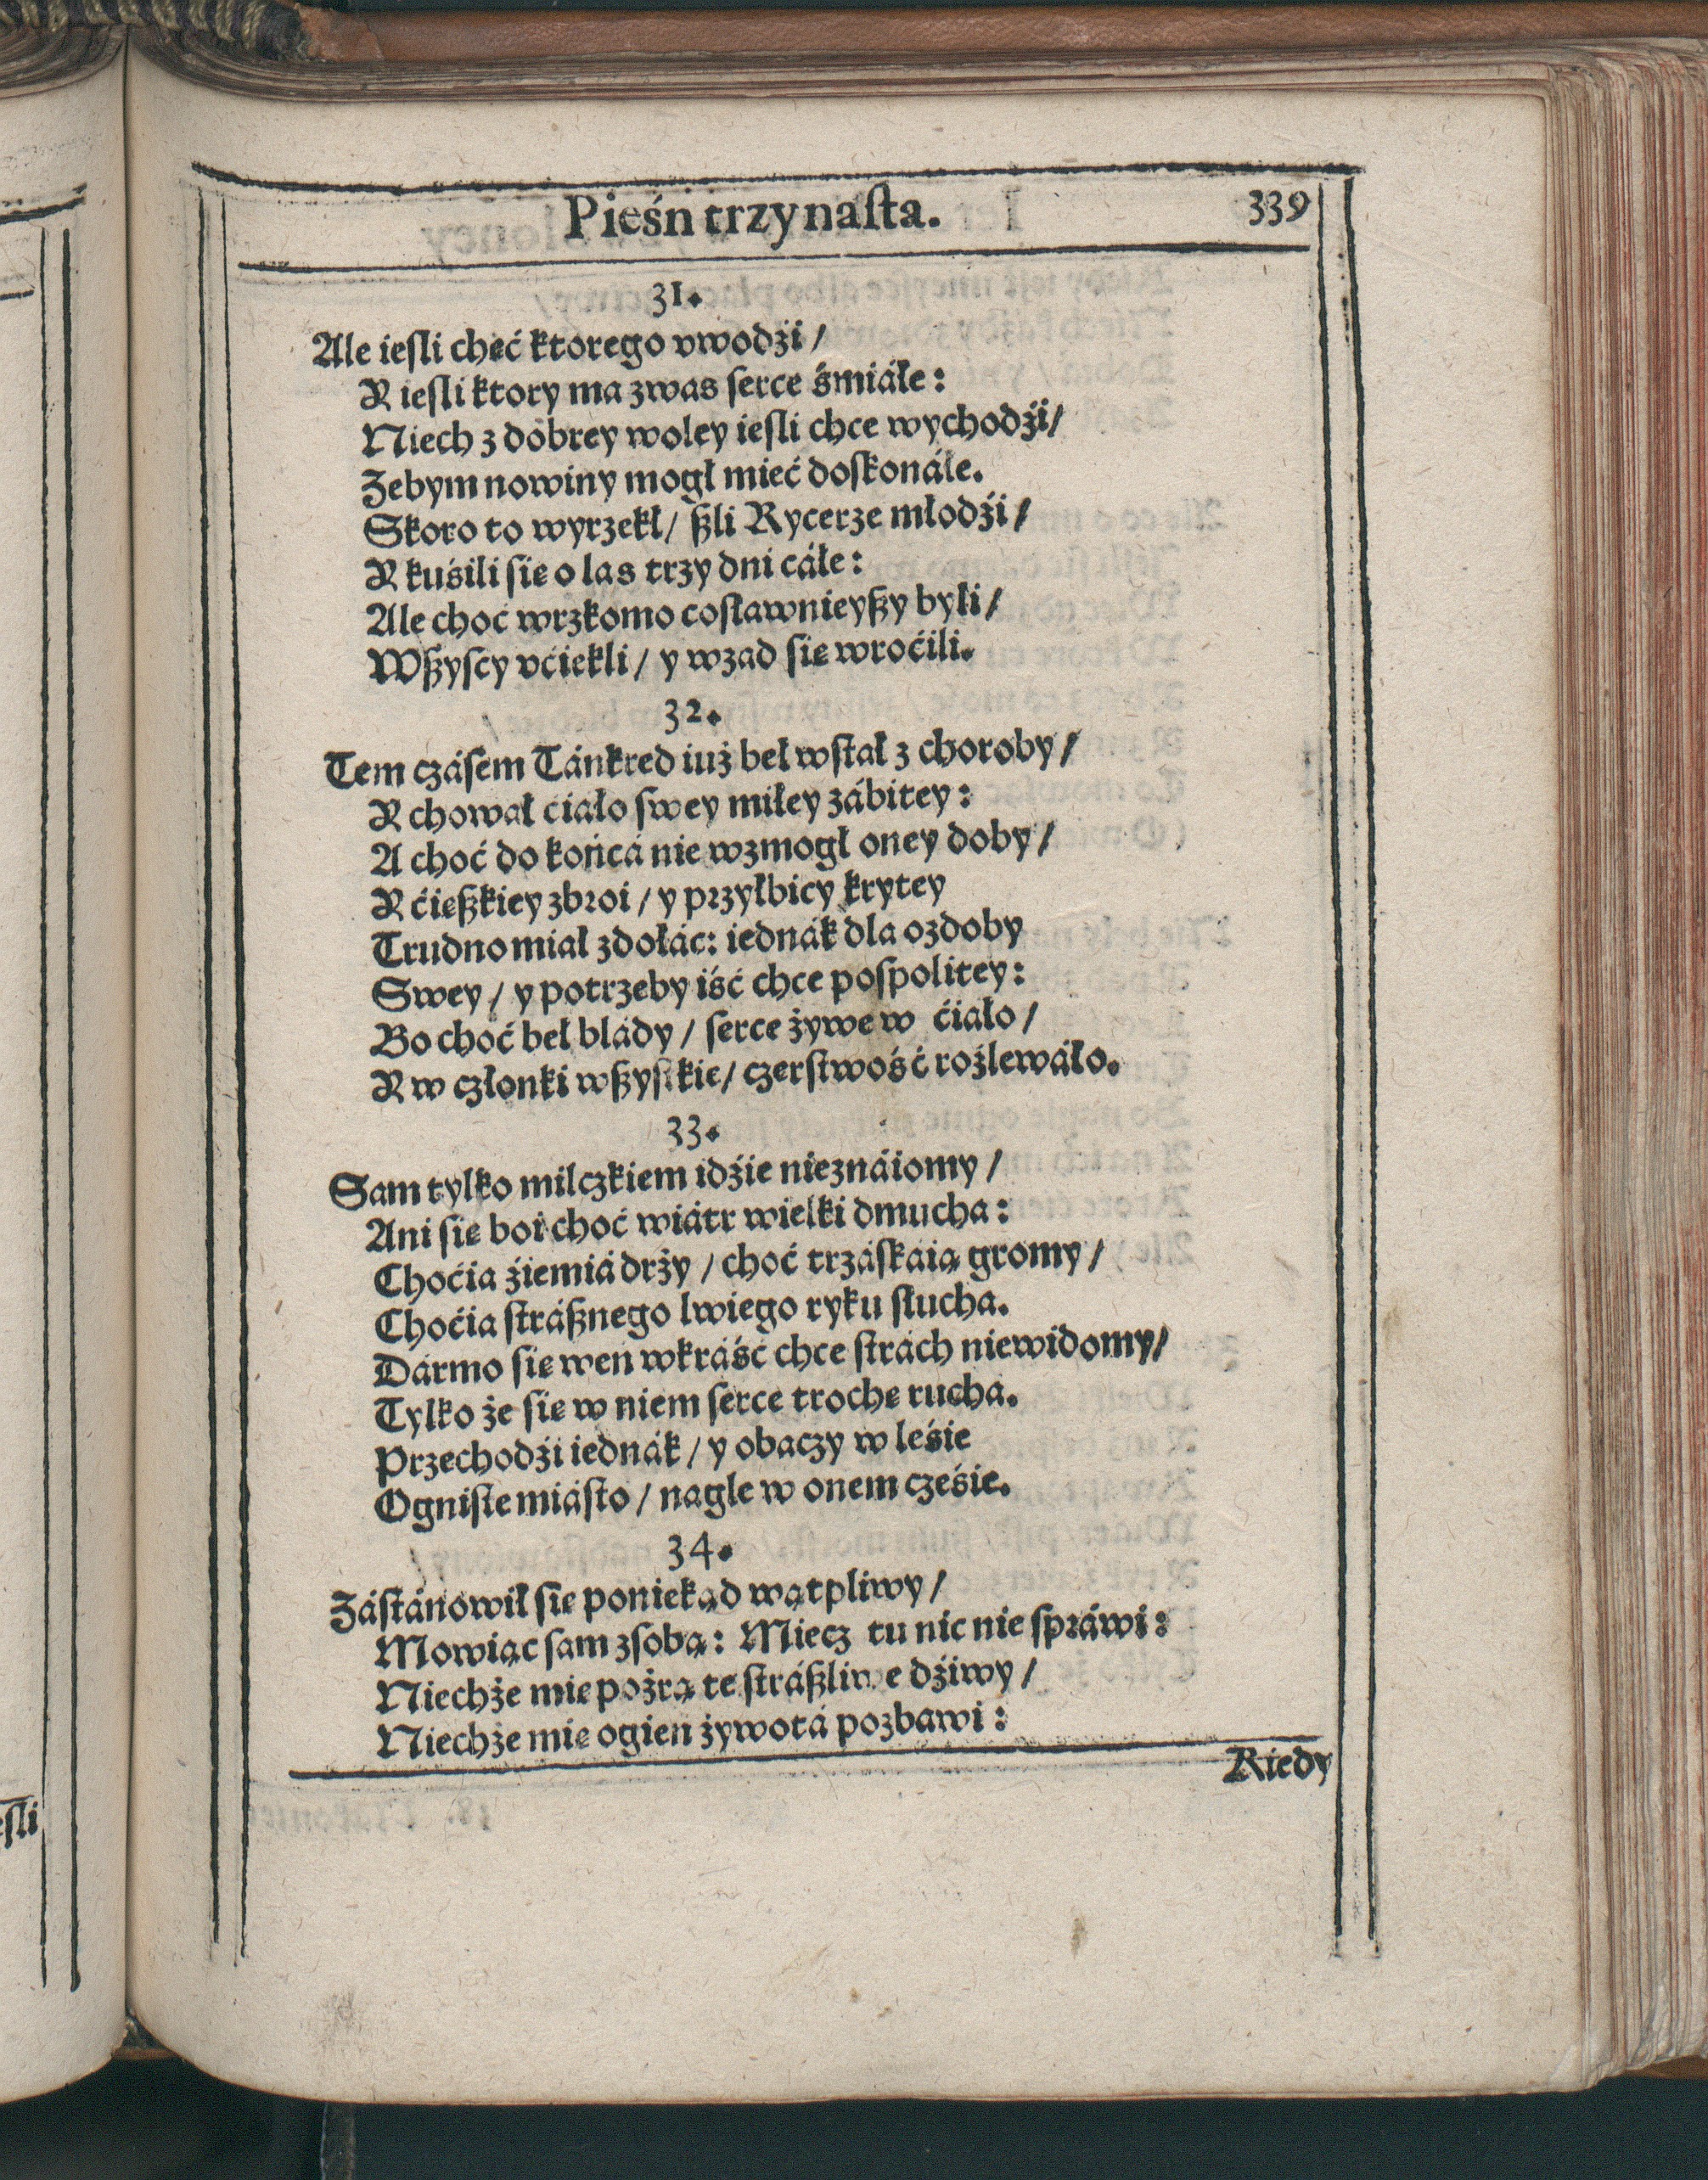 Pieśń trzynasta. 339
31.
Ale iesli chęć ktorego vwodźi /
Y iesli ktory ma zwas serce śmiáłe:
Niech z dobrey woley iesli chce wychodźi /
Zebym nowiny mogł mieć doskonáłe.
Skoro to wyrzekł / szli Rycerze młodźi /
Y kuśili się o las trzy dni cáłe:
Ale choć wrzkomo cosławnieyszy byli /
Wszyscy vćiekli / y wzad się wroćili.
32.
Tem czásem Tánkred iuż beł wstał z choroby /
Y chował ciało swey miłey zábitey:
A choć do końcá nie wzmogł oney doby /
Y ćięszkiey zbroi / y przyłbicy krytey
Trudno miał zdołác: iednák dla ozdoby
Swey / y potrzeby iść chce pospolitey:
Bo choć beł blády / serce żywe w ćiało /
Y w członki wszystkie / czerstwość roźlewáło.
33.
Sam tylko milczkiem idźie nieznáiomy /
Ani się boi choć wiátr wielki dmucha:
Choćia źiemiá drży / choć trzáskáią gromy /
Choćia strásznego lwiego ryku słucha.
Dármo się weń wkráść chce strách niewidomy /
Tylko że się w niem serce trochę rucha.
Przechodźi iednák / y obaczy w leśie
Ogniste miásto / nagle w onem cześie.
34.
Zástánowił się poniekąd wątpliwy /
Mowiąc sam zsobą: Miecz tu nic nie spráwi:
Niechże mię pożrą te strászliwe dźiwy /
Niechże mię ogien żywotá pozbawi:
Kiedy
esli